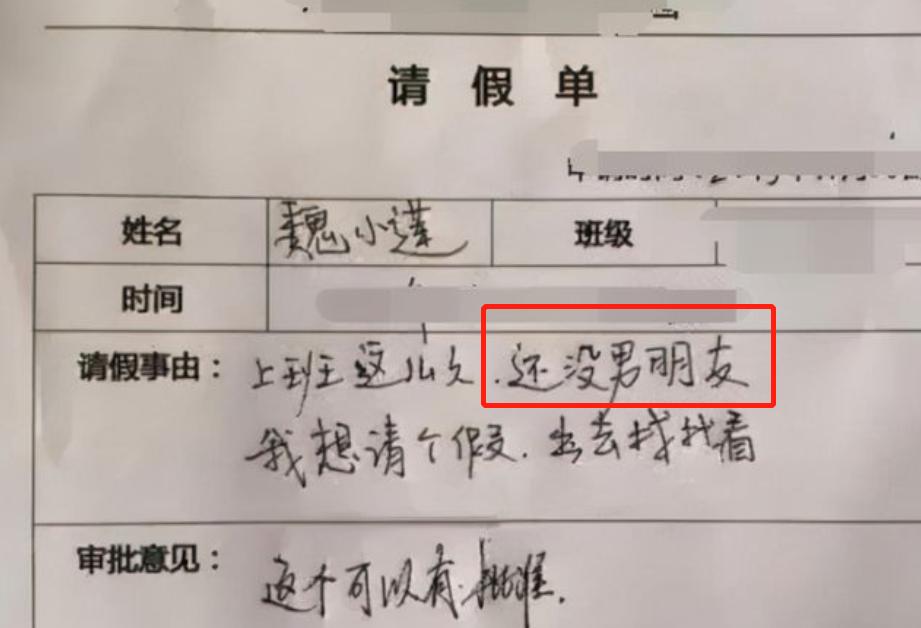 请假单
姓名 魏小莲 班级
时间
请假事由：上班这么久，还没男朋友
我想请个假，出去找找看
审批意见：这个可以有，批准。